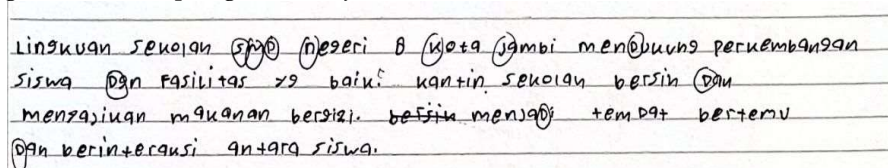 Lingkungan sekolah SMP Negeri 8 Kota Jambi mendukung perkembangan
siswa Dan Fasilitas yg baik. kantin sekolah bersih Dan
mengajikan makanan bergizi. bersih menjaDi tempat bertemu
Dan berinteraksi antara siswa.